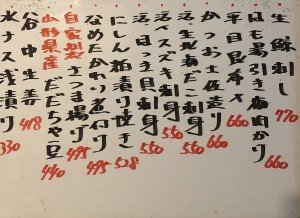 刺し 770
はも湯引き梅肉がけ 660
平目昆布〆 660
かつお土佐造り 660
活 だこ刺身 550
活〆スズキ刺身 550
活つぶ貝刺身 550
にしん粕漬け焼き 528
なめたかれい煮付け 495
自家製さつま揚げ 495
山形県産だだちゃ豆 440
谷中生姜 418
水ナス浅漬け 330